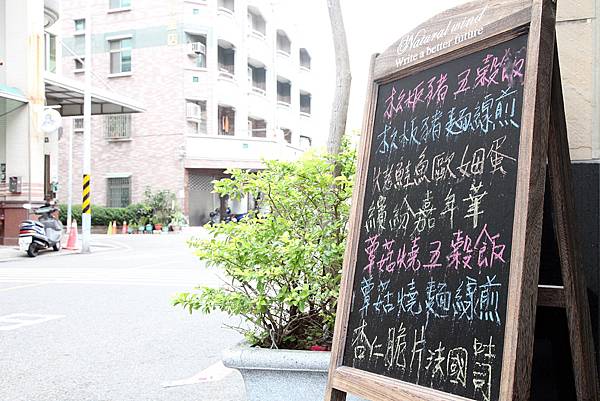 Natural wind
Write a better future
松板豬五穀飯
松板豬麵線煎
火烤鮭魚歐姆蛋
繽紛嘉年華
蕈菇燒五穀飯
蕈菇燒麵線煎
杏仁脆片法國吐司